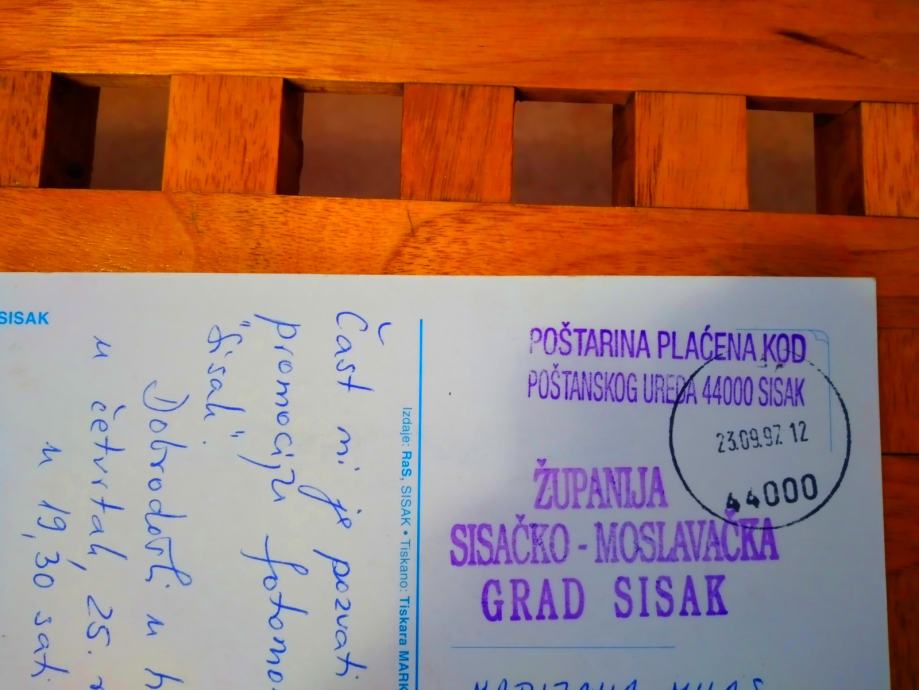 SISAK
Čast mi je pozvati
promociju fotomo
"Sisak".
Dobrodošli u h
u četvrtak, 25.
u 19,30 sati
Izdaje: RaS, SISAK • Tiskano: Tiskara MARK
POŠTARINA PLAĆENA KOD
POŠTANSKOG UREDA 44000 SISAK
23.09.97 12
44000
ŽUPANIJA
SISAČKO - MOSLAVAČKA
GRAD SISAK